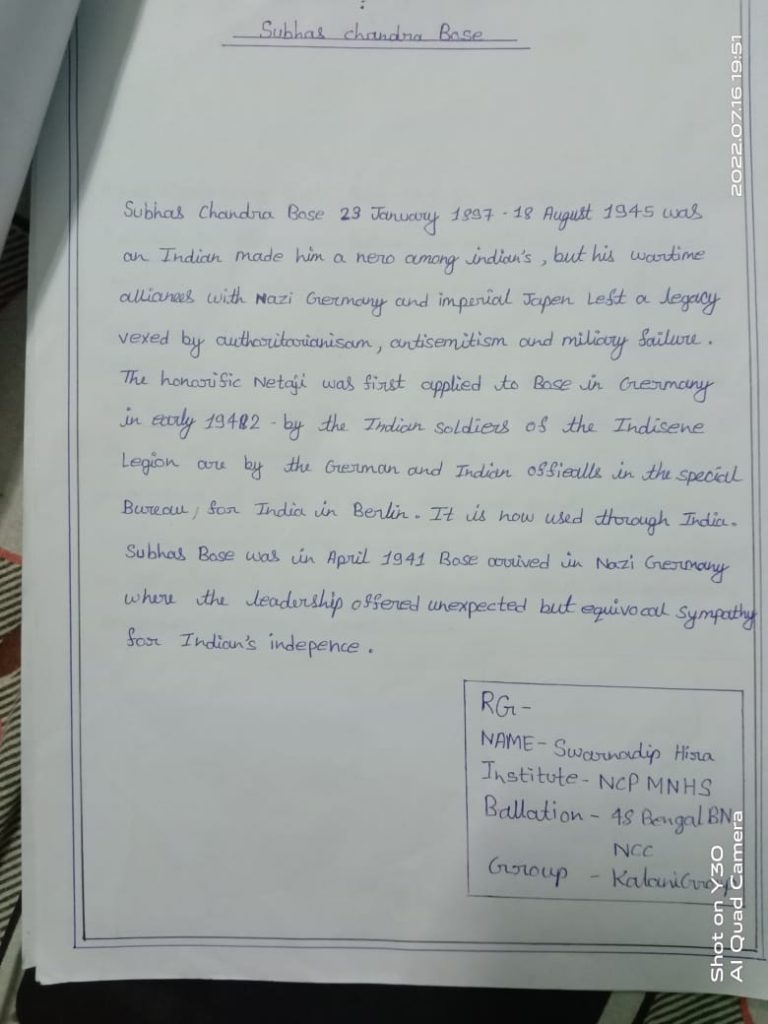 Subhas chandra Bose
Subhas Chandra Bose 23 January 1897 - 18 August 1945 was
an Indian made him a nero among indian's, but his wartime
alliances with Nazi Germany and imperial Japen Left a legacy
vexed by authoritarianisam, antisemitism and miliary failure.
The honorific Netaji was first applied to Bose in Germany
in early 19482 - by the Indian soldiers of the Indisene
Legion are by the German and Indian offiealls in the special
Bureau, for India in Berlin. It is now used through India.
Subhas Bose was in April 1941 Bose arrived in Nazi Germany
where the leadership offered unexpected but equivocal sympathy
for Indian's indepence.
RG-
NAME - Swarnadip Hira
Institute - NCP MNHS
Ballation - 48 Bengal BN
NCC
Group - Kalani Group
Shot on Y30
AI Quad Camera
2022.07.16 19:51